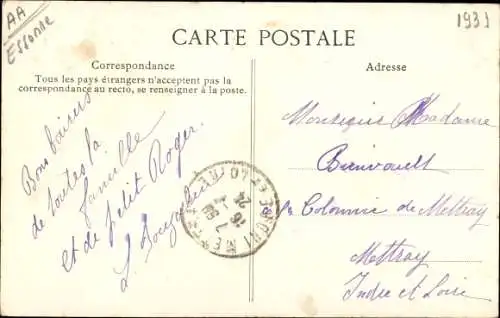 AA
Essonne
1931
CARTE POSTALE
Correspondance
Tous les pays étrangers n'acceptent pas la
correspondance au recto, se renseigner à la poste.
Bons baisers
de toutes la
famille
et de petit Roger.
L.
Adresse
Monsieur Madame
Colonnie de Mettray
Mettray
Indre et Loire
ET LOIRE